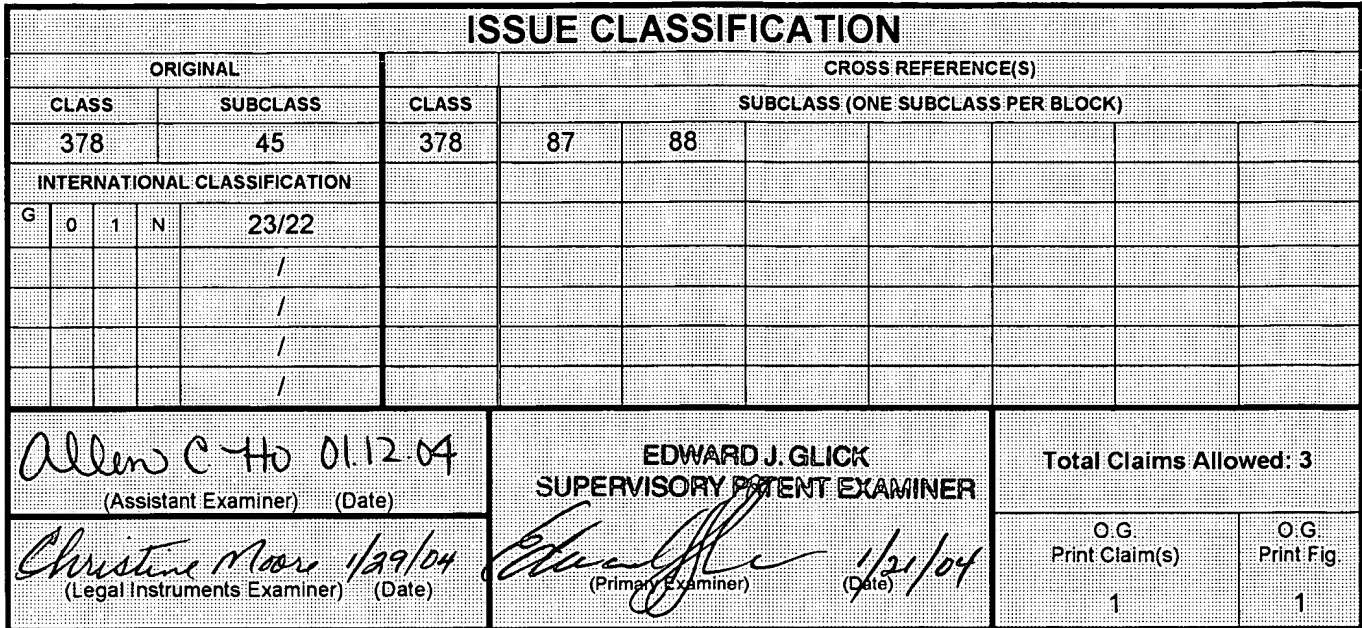 ISSUE CLASSIFICATION
ORIGINAL CROSS REFERENCE(S)
CLASS SUBCLASS CLASS SUBCLASS (ONE SUBCLASS PER BLOCK)
378 45 378 87 88
INTERNATIONAL CLASSIFICATION
G 0 1 N 23/22
/
/
/
/
Allen C Ho 01.12.04
(Assistant Examiner) (Date)
Christine Moore 1/29/04
(Legal Instruments Examiner) (Date)
EDWARD J. GLICK
SUPERVISORY PATENT EXAMINER
1/21/04
(Primary Examiner) (Date)
Total Claims Allowed: 3
O.G.
Print Claim(s)
1
O.G.
Print Fig.
1